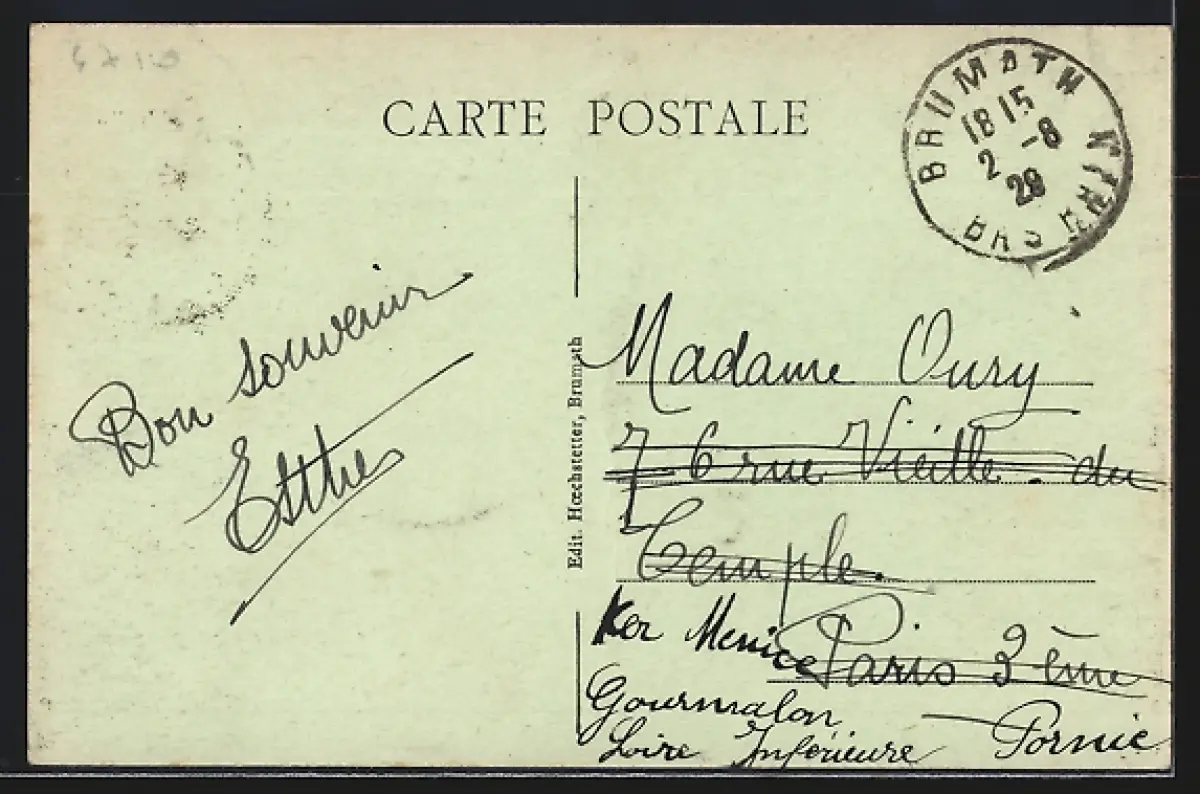 CARTE POSTALE
BRUMATH
18 15
2 -8
28
BAS RHIN
Bon souvenir
Esther
Edit. Hœchstetter, Brumath
Madame Oury
76 rue Vieille du
Temple.
Paris 3ème
Ker
Gourmalon
Pornic
Loire Inférieure